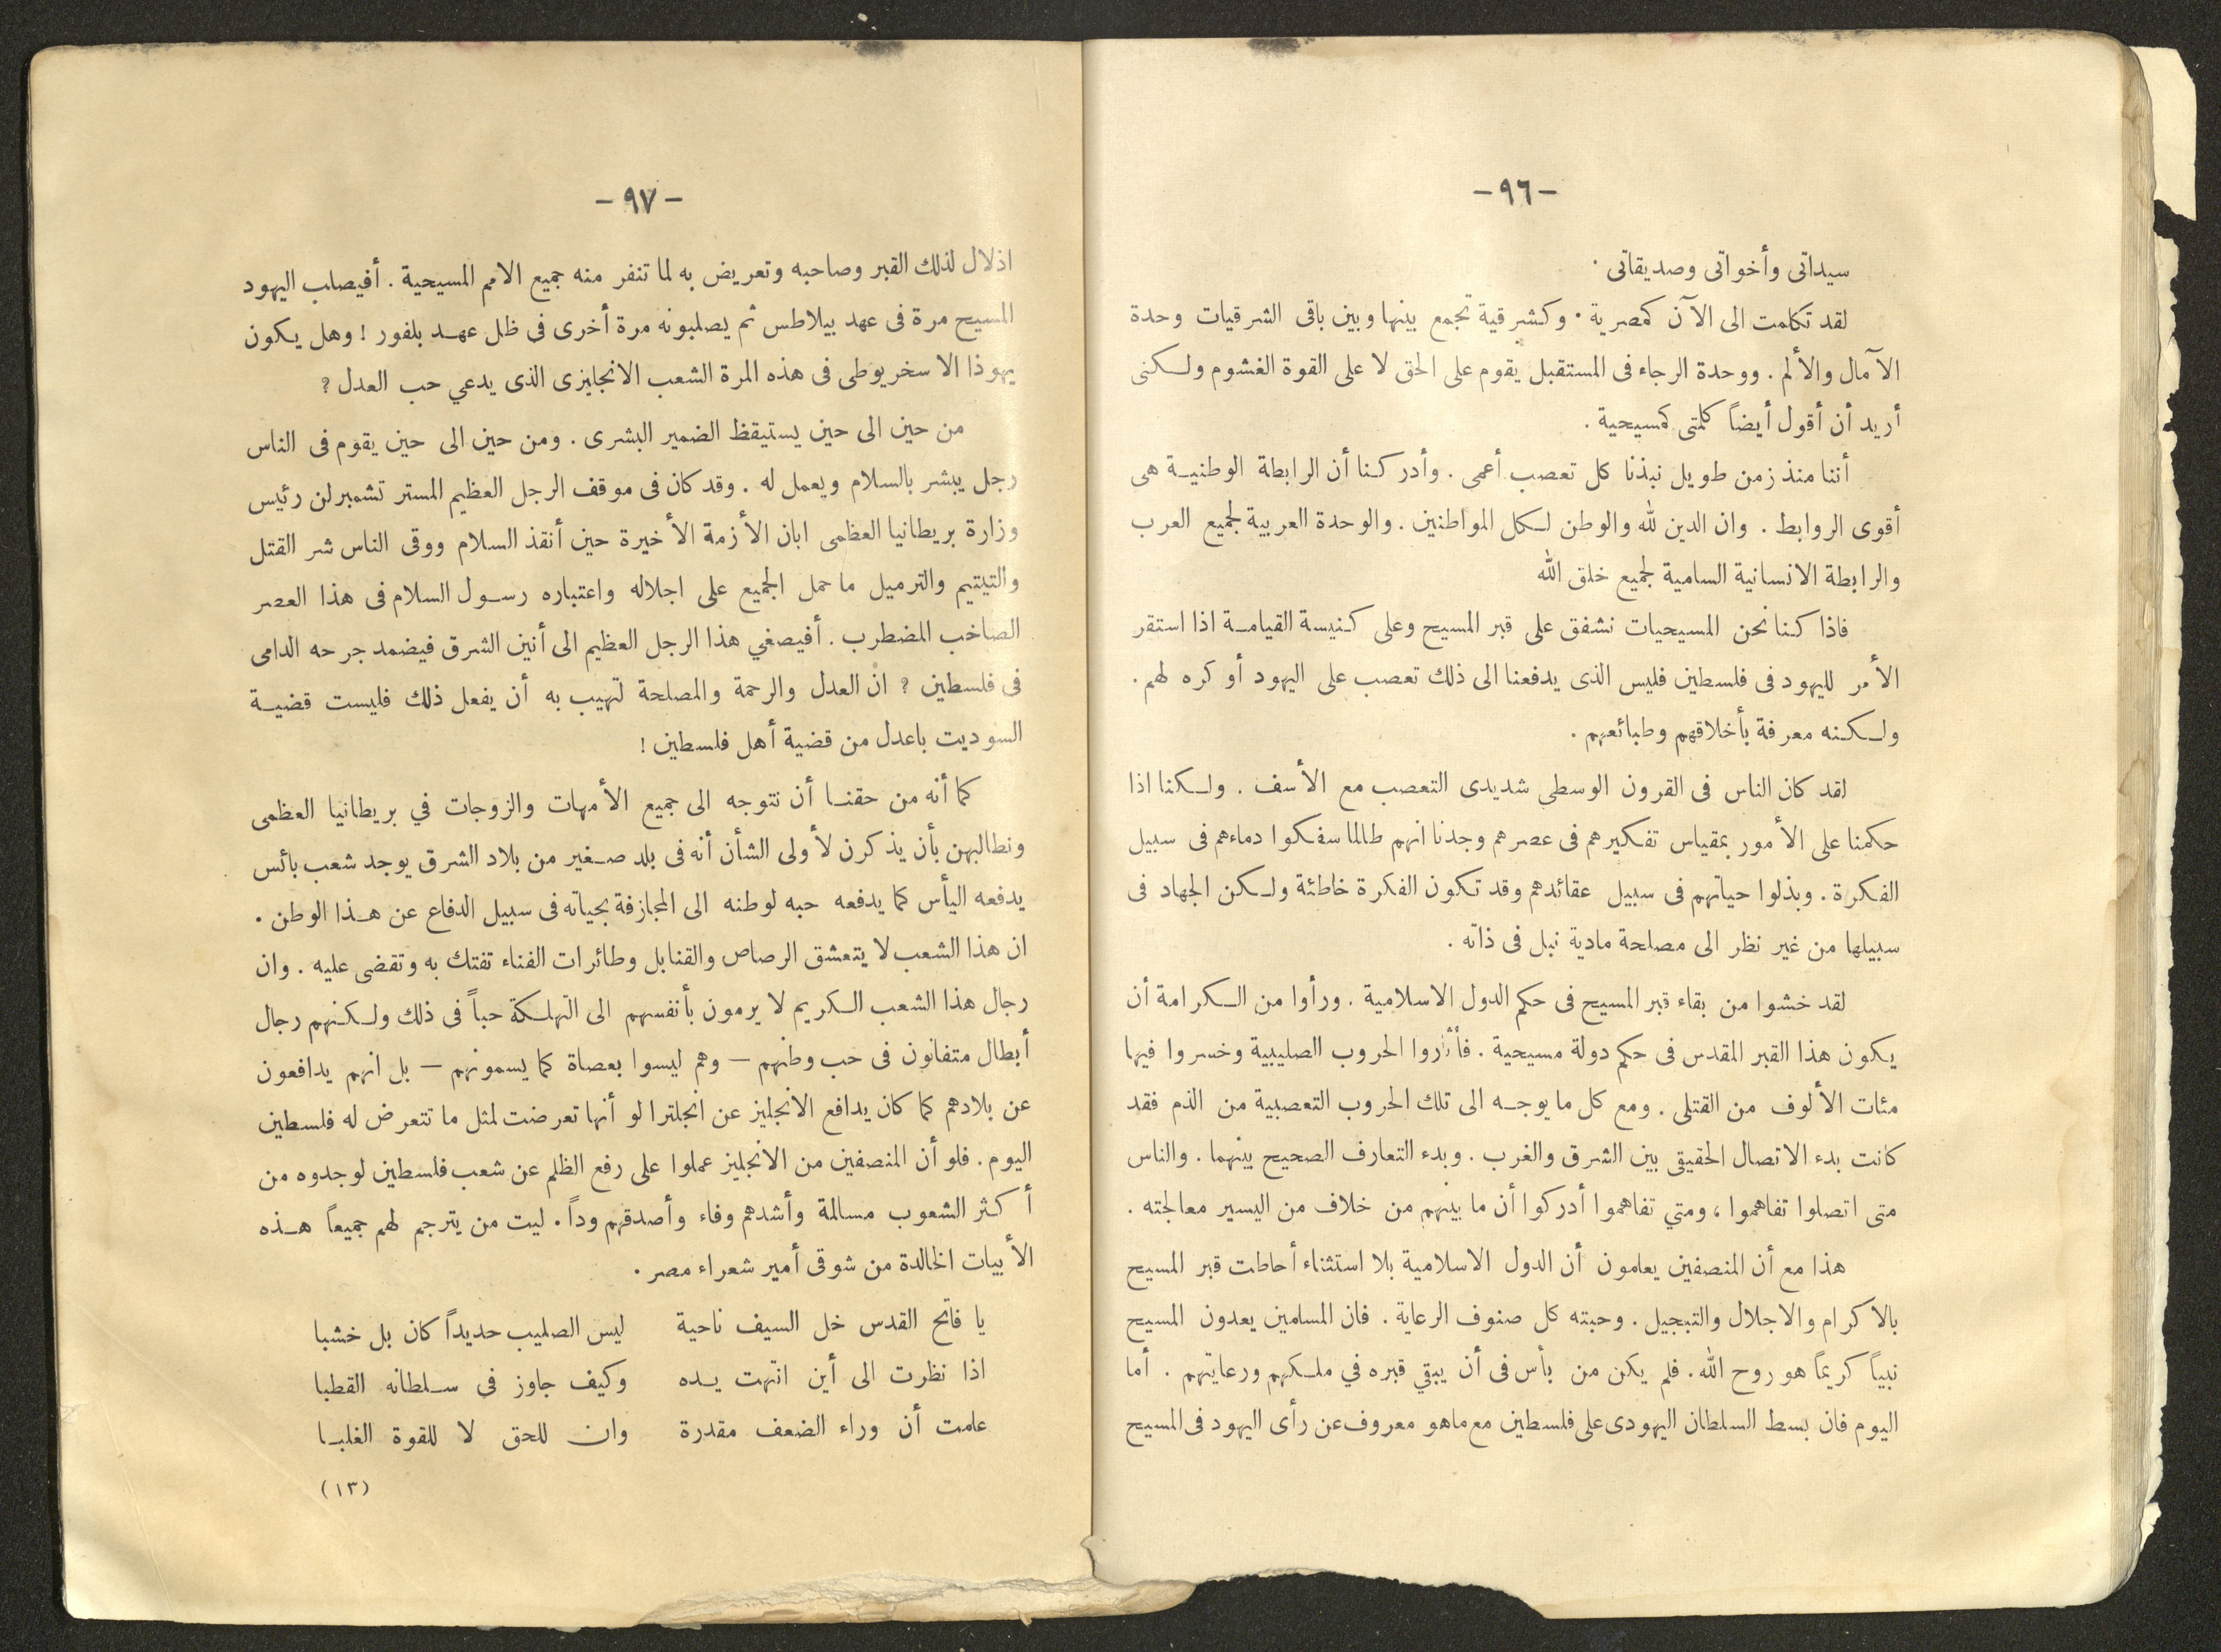 — ٩٦ —
سيداتى وأخواتى وصديقاتى .
لقد تكلمت الى الآن كمصرية . وكشرقية تجمع بينها وبين باقى الشرقيات وحدة
الآمال والألم . ووحدة الرجاء فى المستقبل يقوم على الحق لا على القوة الغشوم ولكنى
أريد أن أقول أيضاً كلتى كمسيحية .
أننا منذ زمن طويل نبذنا كل تعصب أعمى . وأدركنا أن الرابطة الوطنية هى
أقوى الروابط . وان الدين لله والوطن لكل المواطنين . والوحدة العربية لجميع العرب
والرابطة الانسانية السامية لجميع خلق الله
فاذا كنا نحن المسيحيات نشفق على قبر المسيح وعلى كنيسة القيامة اذا استقر
الأمر لليهود فى فلسطين فليس الذى يدفعنا الى ذلك تعصب على اليهود أو كره لهم .
ولكنه معرفة بأخلاقهم وطبائعهم .
لقد كان الناس فى القرون الوسطي شديدى التعصب مع الأسف . ولكنا اذا
حكمنا على الأمور بمقياس تفكيرهم فى عصرهم وجدنا انهم طالما سفكوا دماءهم فى سبيل
الفكرة . وبذلوا حياتهم فى سبيل عقائدهم وقد تكون الفكرة خاطئة ولكن الجهاد فى
سبيلها من غير نظر الى مصلحة مادية نبل فى ذاته .
لقد خشوا من بقاء قبر المسيح فى حكم الدول الاسلامية . ورأوا من الكرامة أن
يكون هذا القبر المقدس فى حكم دولة مسيحية . فأثاروا الحروب الصليبية وخسروا فيها
مئات الألوف من القتلى . ومع كل ما يوجه الى تلك الحروب التعصبية من الذم فقد
كانت بدء الاتصال الحقيقى بين الشرق والغرب . وبدء التعارف الصحيح بينهما . والناس
متى اتصلوا تفاهموا ، ومتي تفاهموا أدركوا أن ما بينهم من خلاف من اليسير معالجته .
هذا مع أن المنصفين يعلمون أن الدول الاسلامية بلا استثناء أحاطت قبر المسيح
بالاكرام والاجلال والتبجيل . وحبته كل صنوف الرعاية . فان المسلمين يعدون المسيح
نبياً كريماً هو روح الله . فلم يكن من بأس فى أن يبقي قبره في ملكهم ورعايتهم . أما
اليوم فان بسط السلطان اليهودى على فلسطين مع ماهو معروف عن رأى اليهود فى المسيح
— ٩٧ —
اذلال لذلك القبر وصاحبه وتعريض به لما تنفر منه جميع الامم المسيحية . أفيصلب اليهود
المسيح مرة فى عهد بيلاطس ثم يصلبونه مرة أخرى فى ظل عهد بلفور ! وهل يكون
يهوذا الاسخريوطى فى هذه المرة الشعب الانجليزى الذى يدعي حب العدل ؟
من حين الى حين يستيقظ الضمير البشرى . ومن حين الى حين يقوم فى الناس
رجل يبشر بالسلام ويعمل له . وقد كان فى موقف الرجل العظيم المستر تشمبرلن رئيس
وزارة بريطانيا العظمى ابان الأزمة الأخيرة حين أنقذ السلام ووقى الناس شر القتل
والتيتيم والترميل ما حمل الجميع على اجلاله واعتباره رسول السلام فى هذا العصر
الصاخب المضطرب . أفيصغي هذا الرجل العظيم الى أنين الشرق فيضمد جرحه الدامى
فى فلسطين ؟ ان العدل والرحمة والمصلحة لتهيب به أن يفعل ذلك فليست قضية
السوديت باعدل من قضية أهل فلسطين !
كما أنه من حقنا أن نتوجه الى جميع الأمهات والزوجات في بريطانيا العظمى
ونطالبهن بأن يذكرن لأولى الشأن أنه فى بلد صغير من بلاد الشرق يوجد شعب بائس
يدفعه اليأس كما يدفعه حبه لوطنه الى المجازفة بحياته فى سبيل الدفاع عن هذا الوطن .
ان هذا الشعب لا يتعشق الرصاص والقنابل وطائرات الفناء تفتك به وتقضى عليه . وان
رجال هذا الشعب الكريم لا يرمون بأنفسهم الى التهلكة حباً فى ذلك ولكنهم رجال
أبطال متفانون فى حب وطنهم — وهم ليسوا بعصاة كما يسمونهم — بل انهم يدافعون
عن بلادهم كما كان يدافع الانجليز عن انجلترا لو أنها تعرضت لمثل ما تتعرض له فلسطين
اليوم . فلو أن المنصفين من الانجليز عملوا على رفع الظلم عن شعب فلسطين لوجدوه من
أكثر الشعوب مسالمة وأشدهم وفاء وأصدقهم وداً . ليت من يترجم لهم جميعاً هذه
الأبيات الخالدة من شوقى أمير شعراء مصر .
يا فاتح القدس خل السيف ناحية ليس الصليب حديداً كان بل خشبا
اذا نظرت الى أين انتهت يده وكيف جاوز فى سلطانه القطبا
علمت أن وراء الضعف مقدرة وان للحق لا للقوة الغلبا
(١٣)